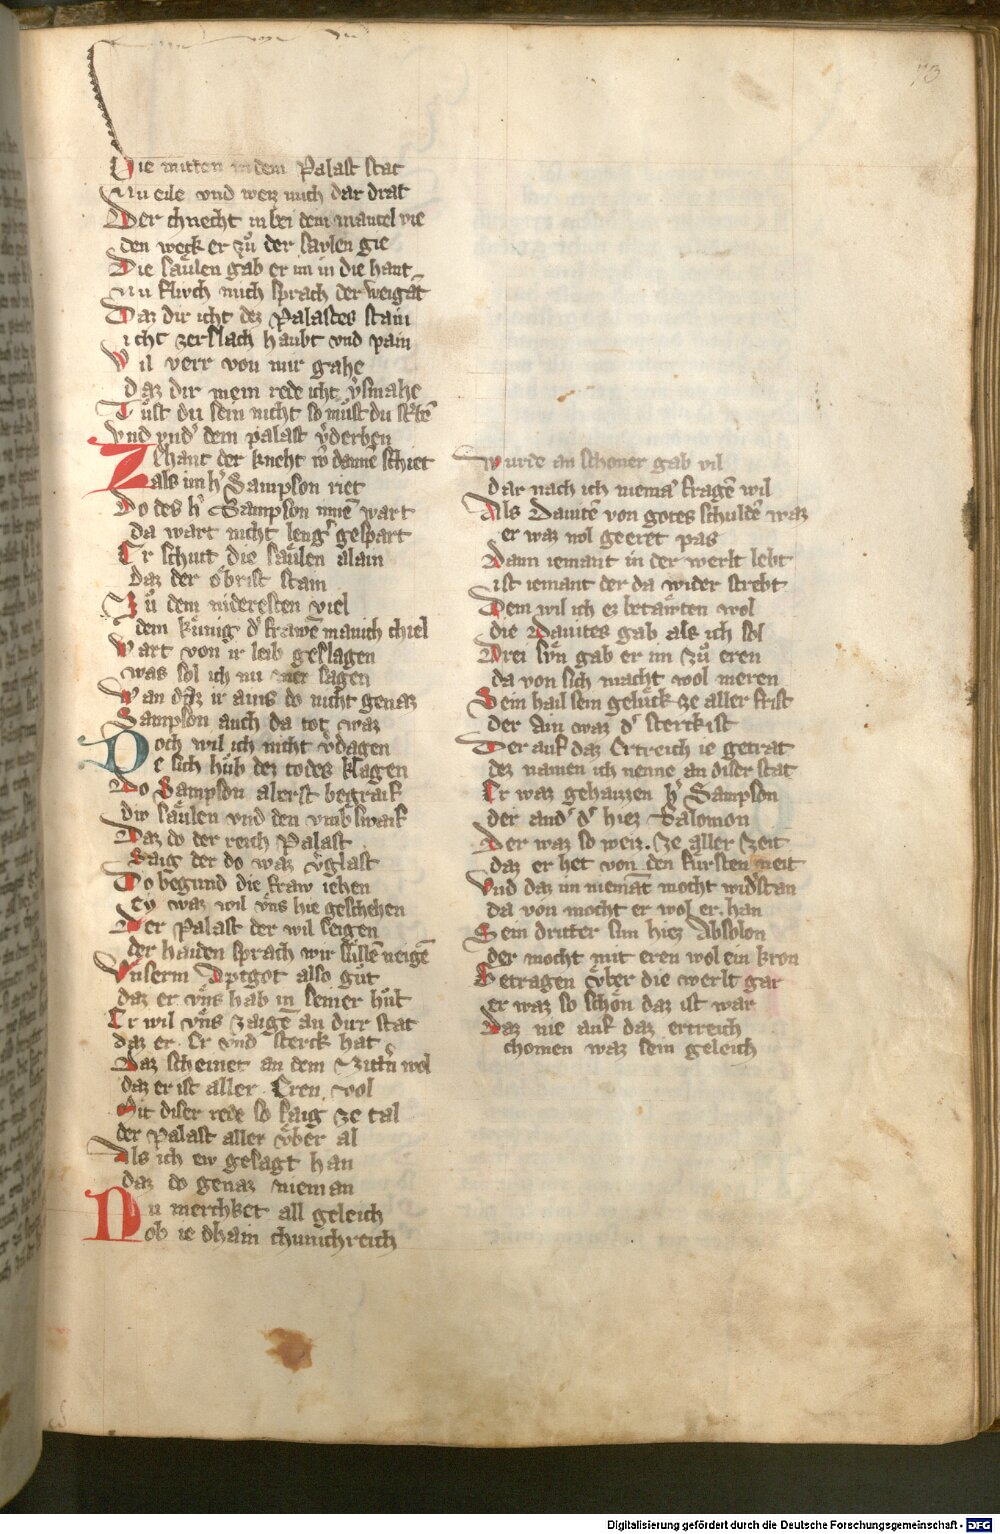 73
Die mitten in dem Palast stat
Nu eile vnd weiz mich dar drat
Der chnecht in bei dem mantel vie
den weck er zů der saẅlen gie
Die saůlen gab er im in die hant
Nu fluch mich sprach der weigāt
Daz dir icht dez Palastes stain
icht zerslach haubt vnd pain
Vil verr von mir gahe
daz dir mein rede icht v̓smahe
Tůst du sein nicht so můst du st̓bē
Vnd vnd̓ dem palast v̓derben
Zehant der kneht vō dannē schiet
als im h̓ Sampson riet
Do des h̓ Sampson innē wart
da wart nicht leng̓ gespart
Er schutt die saůlen alain
daz der ob̓rist stain
Zů dem nideresten viel
dem kůnig d̓ frawē manich chiel
Wart von ir leib geslagen
was sol ich nu mer sagen
Wan daz ir ains do nicht genas
Sampson auch da tot waz
Doch wil ich nicht v̓dagen
E sich hůb dez todes klagen
Do Sampson alerst begraif
diw saůlen vnd den vmbswaif
Daz do der reich Palast
Saig der do waz v̓glast
Do begund die fraw iehen
ey waz wil vns hie geschehen
Der Palast der wil seigen
der haiden sprach wir sůllē neigē
Vnserm Aptgot also gůt
daz er vns hab in seiner hůt
Er wil vns zaigē an dur stat
daz er Er vnd sterck hat
Daz scheinet an dem zittn̓ wol
daz er ist aller Eren vol
Mit diser rede so saig ze tal
der Palast aller vber al
Als ich ew gesagt han
daz do genaz nieman
Nu merchket all geleich
ob ie dhain chunichreich
Wurde an schoner gab vil
dar nach ich niema̓ fragē wil
Als Dauite von gotes schuldē waz
er waz vol geeret pas
Dann iemant in der werlt lebt
ist iemant der da wider strebt
Dem wil ich ez betaẅten wol
die Dauites gab als ich sol
Drei sůn gab er im zů eren
da von sich macht wol meren
Sein hail sein gelůck ze aller frist
der Ain waz d̓ sterckist
Der auf daz Ertreich ie getrat
dez namen ich nenne an diser stat
Er waz gehaizzen h̓ Sampson
der and̓ d̓ hiez Salomon
Der waz so weiz. ze aller zeit
daz er het von den fursten neit
Vnd daz im niemāt mocht wid̓stan
da von mocht er wol er. han
Sein dritter sun hiez Absolon
der mocht mit eren wol ein kron
Getragen ůber die werlt gar
er waz so schön daz ist war
Daz nie auf daz ertreich
chomen waz sein geleich
Digitalisierung gefördert durch die Deutsche Forschungsgemeinschaft - DFG